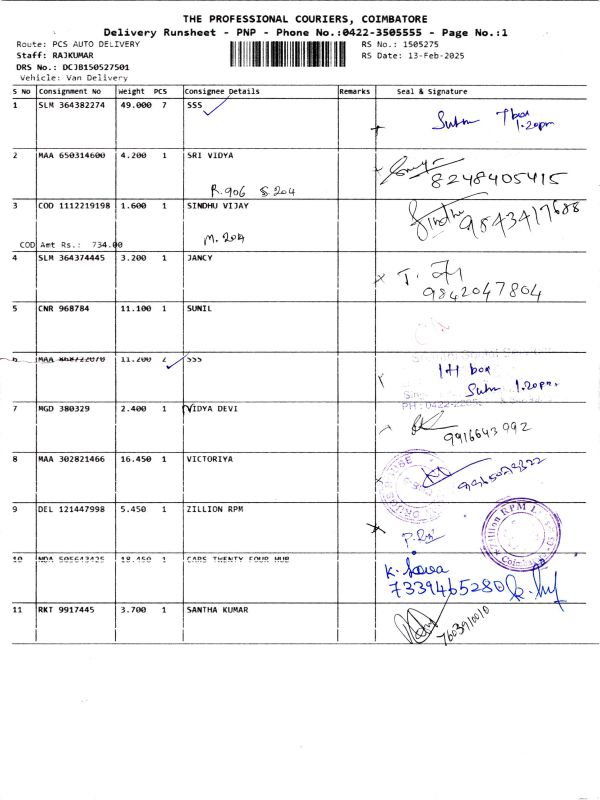 THE PROFESSIONAL COURIERS, COIMBATORE
Delivery Runsheet - PNP - Phone No.:0422-3505555 - Page No.:1
Route: PCS AUTO DELIVERY RS No.: 1505275
Staff: RAJKUMAR RS Date: 13-Feb-2025
DRS No.: DCJB150527501
Vehicle: Van Delivery
S No Consignment No Weight PCS Consignee Details Remarks Seal & Signature
1 SLM 364382274 49.000 7 SSS
7 box
1.20pm
2 MAA 650314600 4.200 1 SRI VIDYA
8248405415
R.906 S.204
3 COD 1112219198 1.600 1 SINDHU VIJAY
Sindhu 9843417688
M.204
COD Amt Rs.: 734.00
4 SLM 364374445 3.200 1 JANCY
9842047804
5 CNR 968784 11.100 1 SUNIL
6 MAA 868722070 11.200 2 SSS
1+1 box
1.20pm.
7 MGD 380329 2.400 1 VIDYA DEVI
9916643092
8 MAA 302821466 16.450 1 VICTORIYA
9 DEL 121447998 5.450 1 ZILLION RPM
10 NDA 505643425 18.450 1 CARS TWENTY FOUR HUB
7339465280
11 RKT 9917445 3.700 1 SANTHA KUMAR